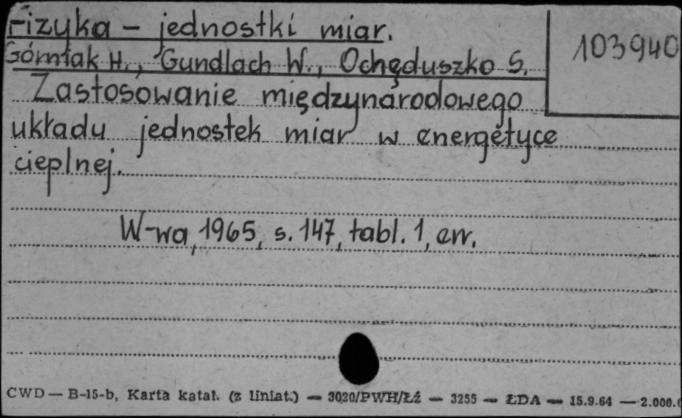 Fizyka - jednostki miar.
103940
Górniak H., Gundlach W., Ochęduszko S.
Zastosowanie międzynarodowego
układu jednostek miar w energetyce
cieplnej.
W-wa, 1965, s. 147, tabl. 1, err.
CWD — B-15-b, Karta katal. (z liniat.) — 3020/PWH/Łź — 3255 — ŁDA — 15.9.64 — 2.000.0